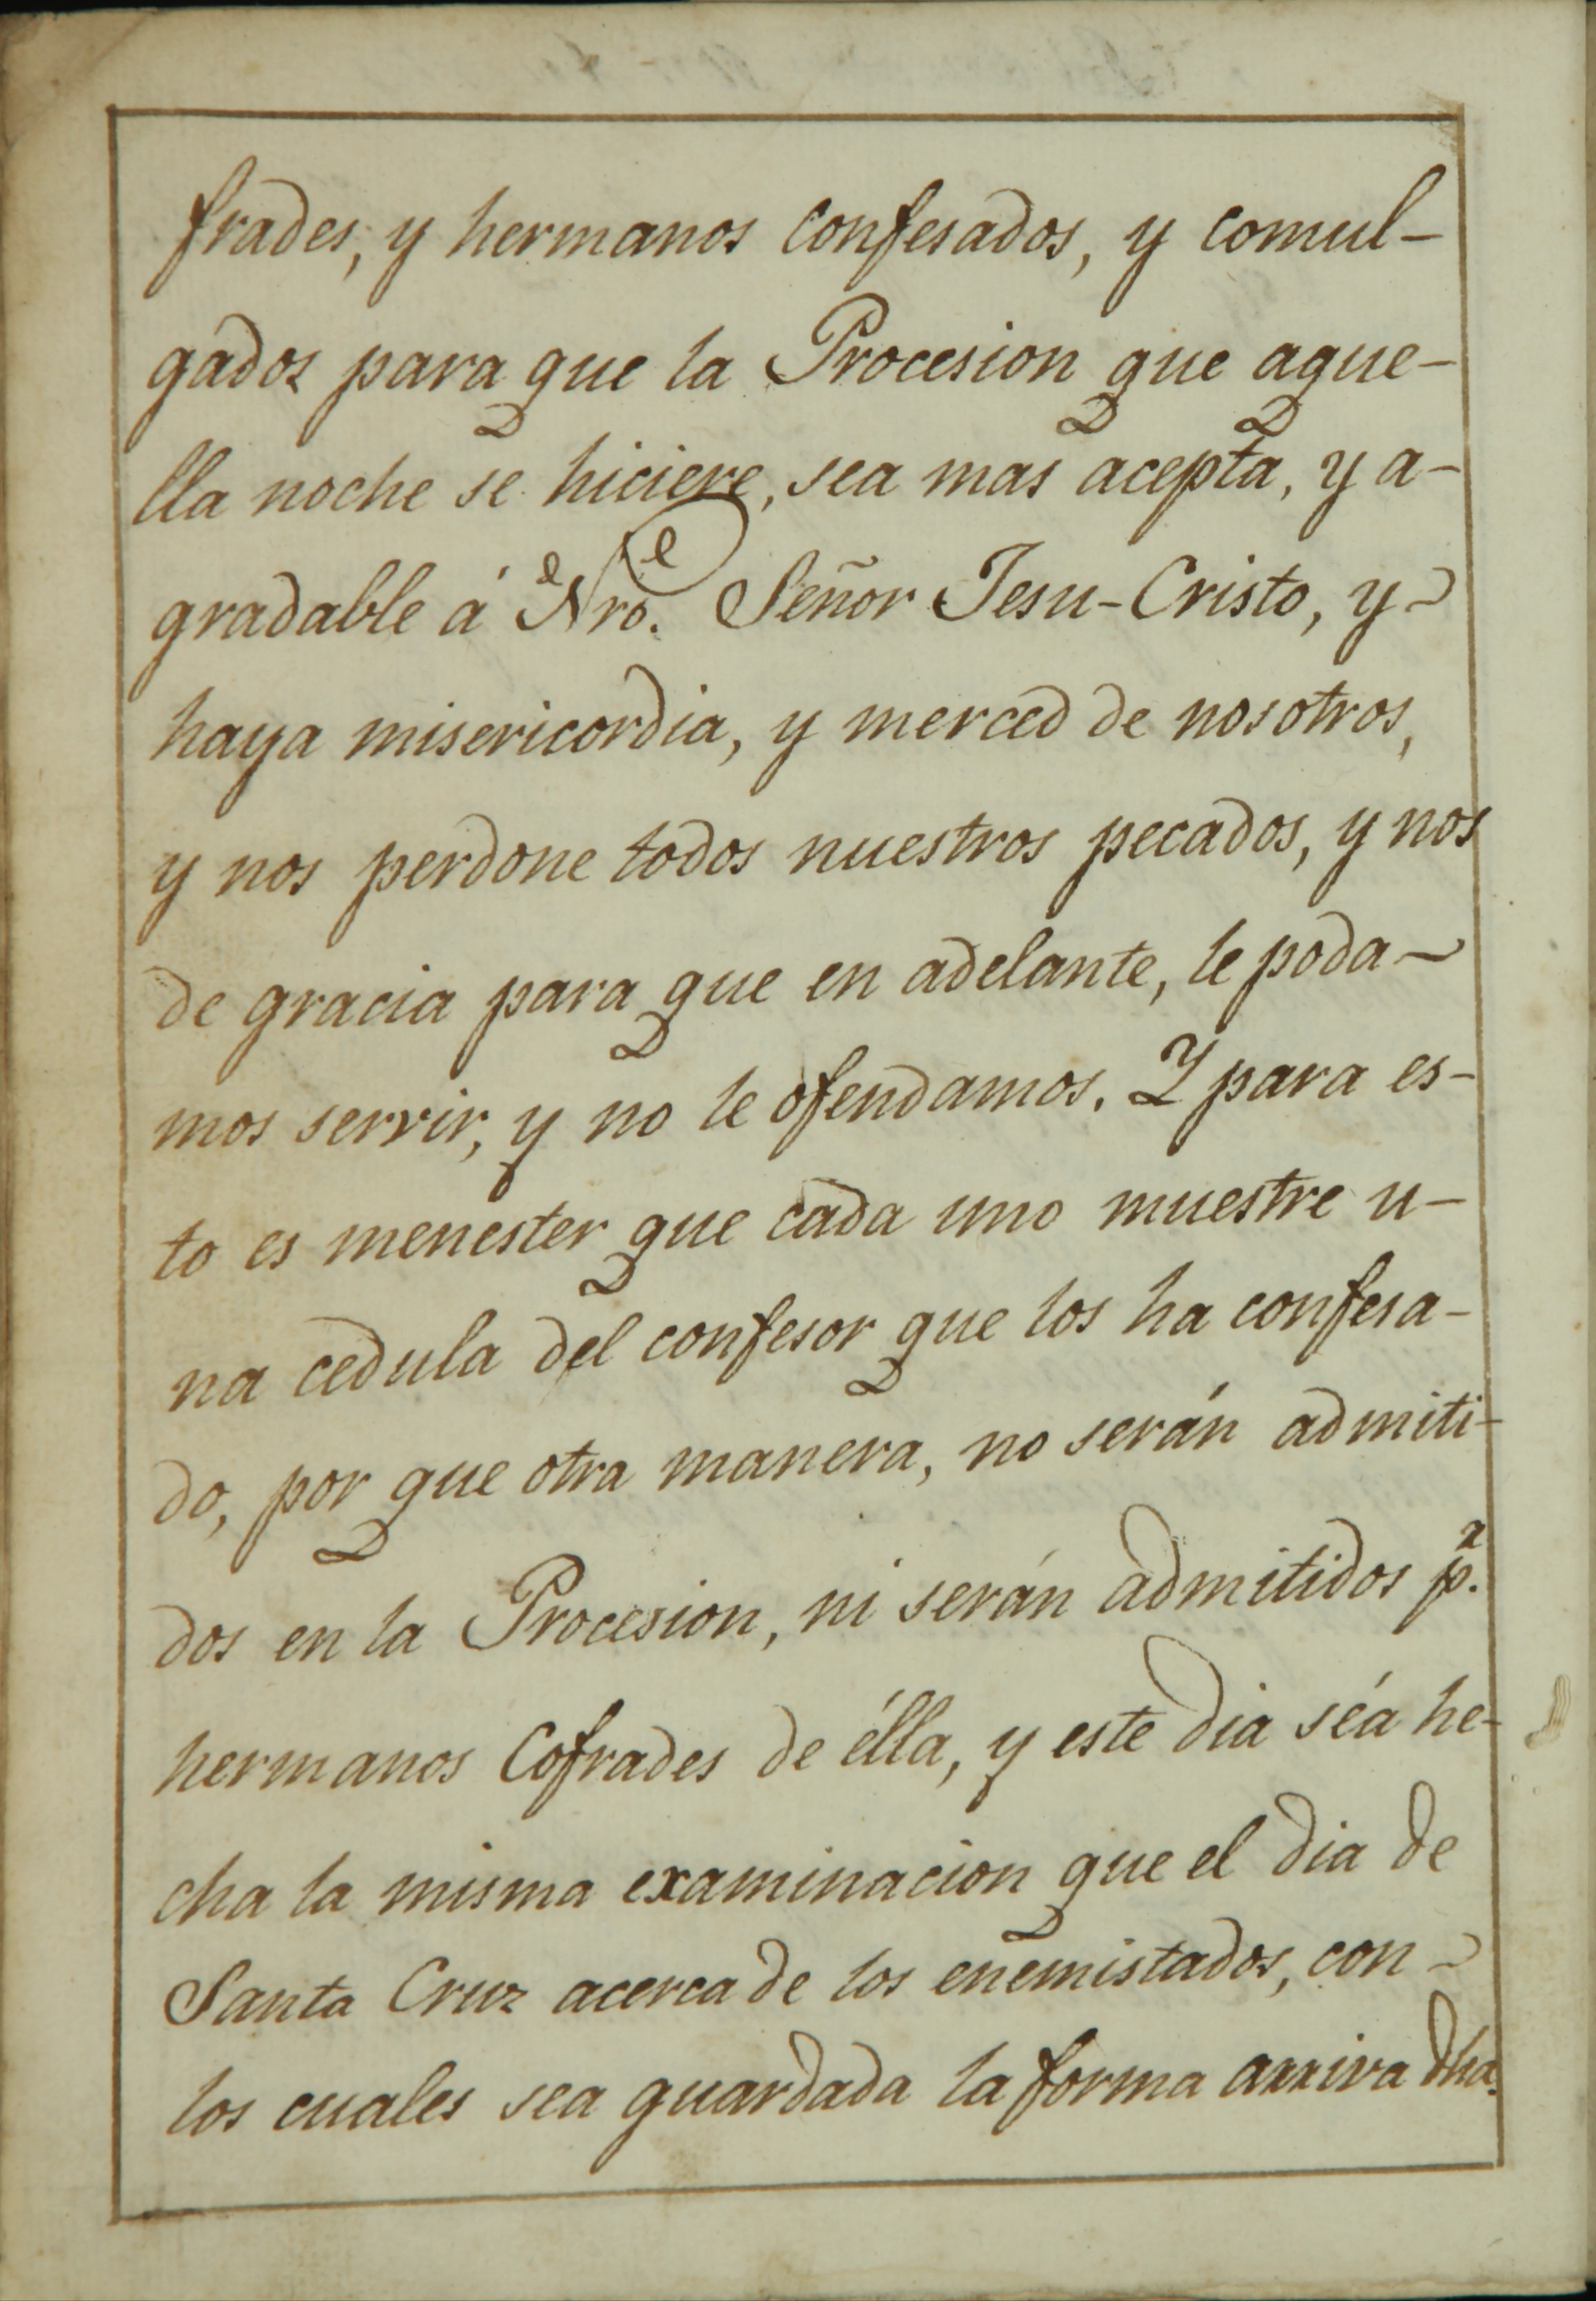 frades, y hermanos confesados, y comul-
gados para que la Procesion que aque-
lla noche se hiciere, sea mas acepta, y a-
gradable á Nro. Señor Jesu-Cristo, y
haya misericordia, y merced de nosotros,
y nos perdone todos nuestros pecados, y nos
de gracia para que en adelante, le poda-
mos servir, y no le ofendamos. Y para es-
to es menester que cada uno muestre u-
na cedula del confesor que los ha confesa-
do, por que otra manera, no serán admiti-
dos en la Procesion, ni serán admitidos pª.
hermanos Cofrades de élla, y este dia séa he-
cha la misma examinacion que el dia de
Santa Cruz acerca de los enemistados, con
los cuales sea guardada la forma arriva dha.